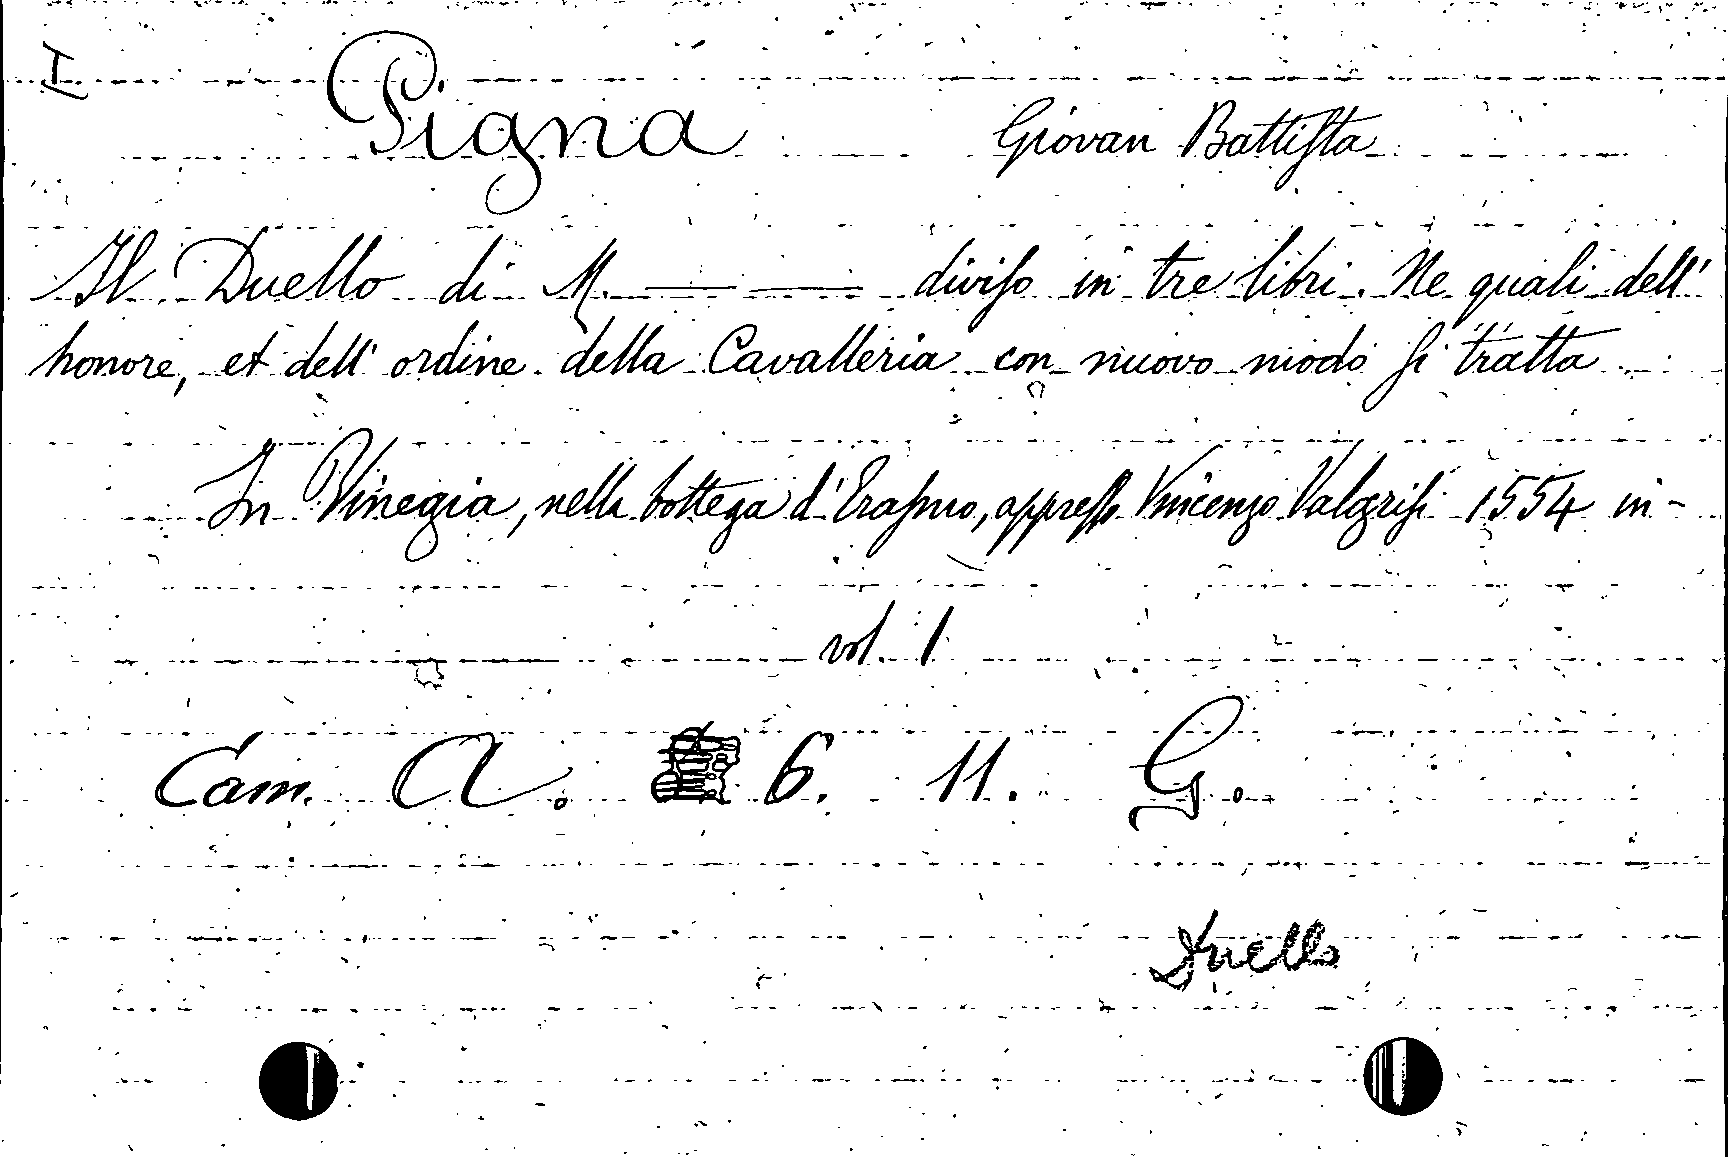 I
Pigna Giovan Battiſta
Il Duello di M. —— —— diviſo in tre libri. Ne quali dell'
honore, et dell' ordine della Cavalleria con nuovo modo ſi tratta
In Vinegia, nella bottega d'Eraſmo, appreſſo Vincenzo Valgriſi 1554 in-
vol. 1
Cam. A. 6. 11. G.
Duello